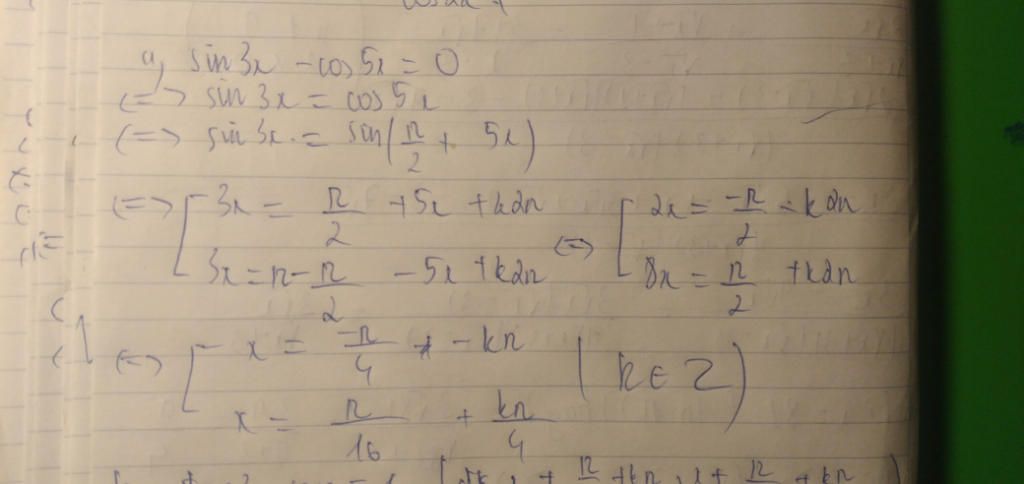 a, sin3x - cos5x = 0
<=> sin3x = cos5x
<=> sin3x = sin(π/2 + 5x)
<=> [ 3x = π/2 + 5x + k2π <=> [ 2x = -π/2 - k2π
3x = π - π/2 - 5x + k2π 8x = π/2 + k2π
<=> [ x = -π/4 - kπ (k ∈ Z)
x = π/16 + kπ/4